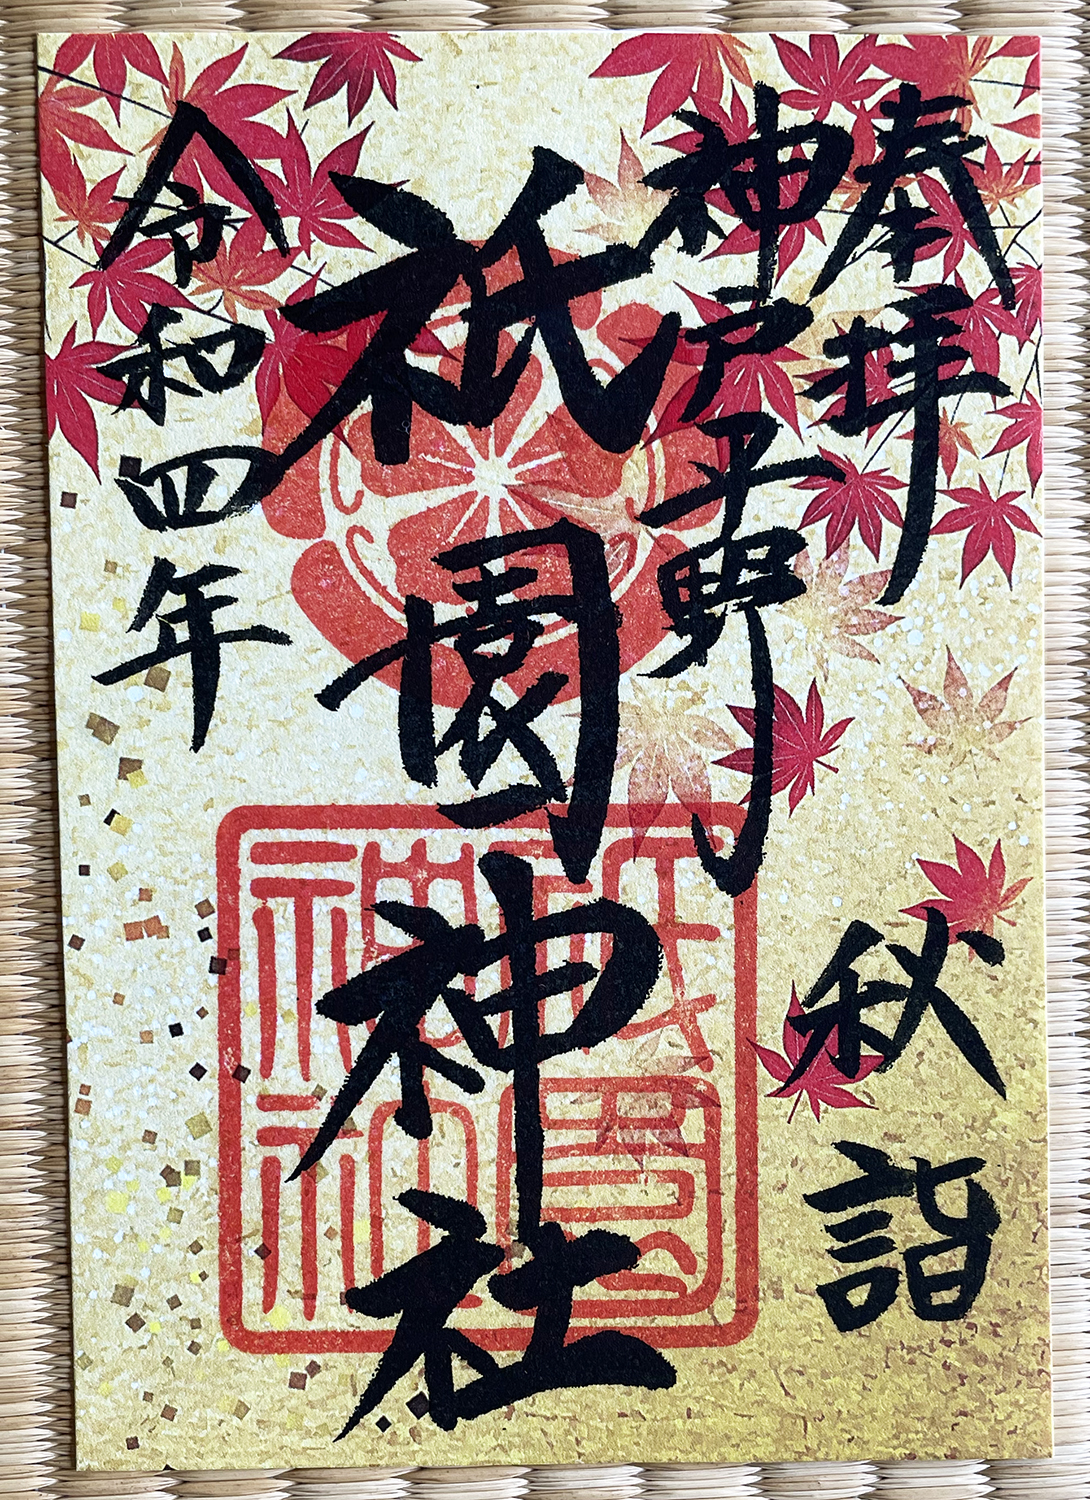 奉拝
秋詣
神戸平野
祇園神社
祇園神社
令和四年